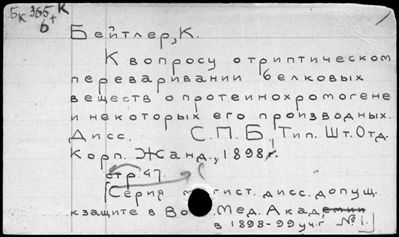 Бк 365 + К
6
Бейтлер, К.
К вопросу о триптическом
переваривании белковых
веществ о протеинохромогене
и некоторых его производных.
Дисс. С.П.Б., Тип. Шт. Отд.
Корп. Жанд., 1898 г.
стр 47.
(Серия магист. дисс. допущ.
к защите в Во. Мед. Академии
в 1898-99 уч. г № 1.)